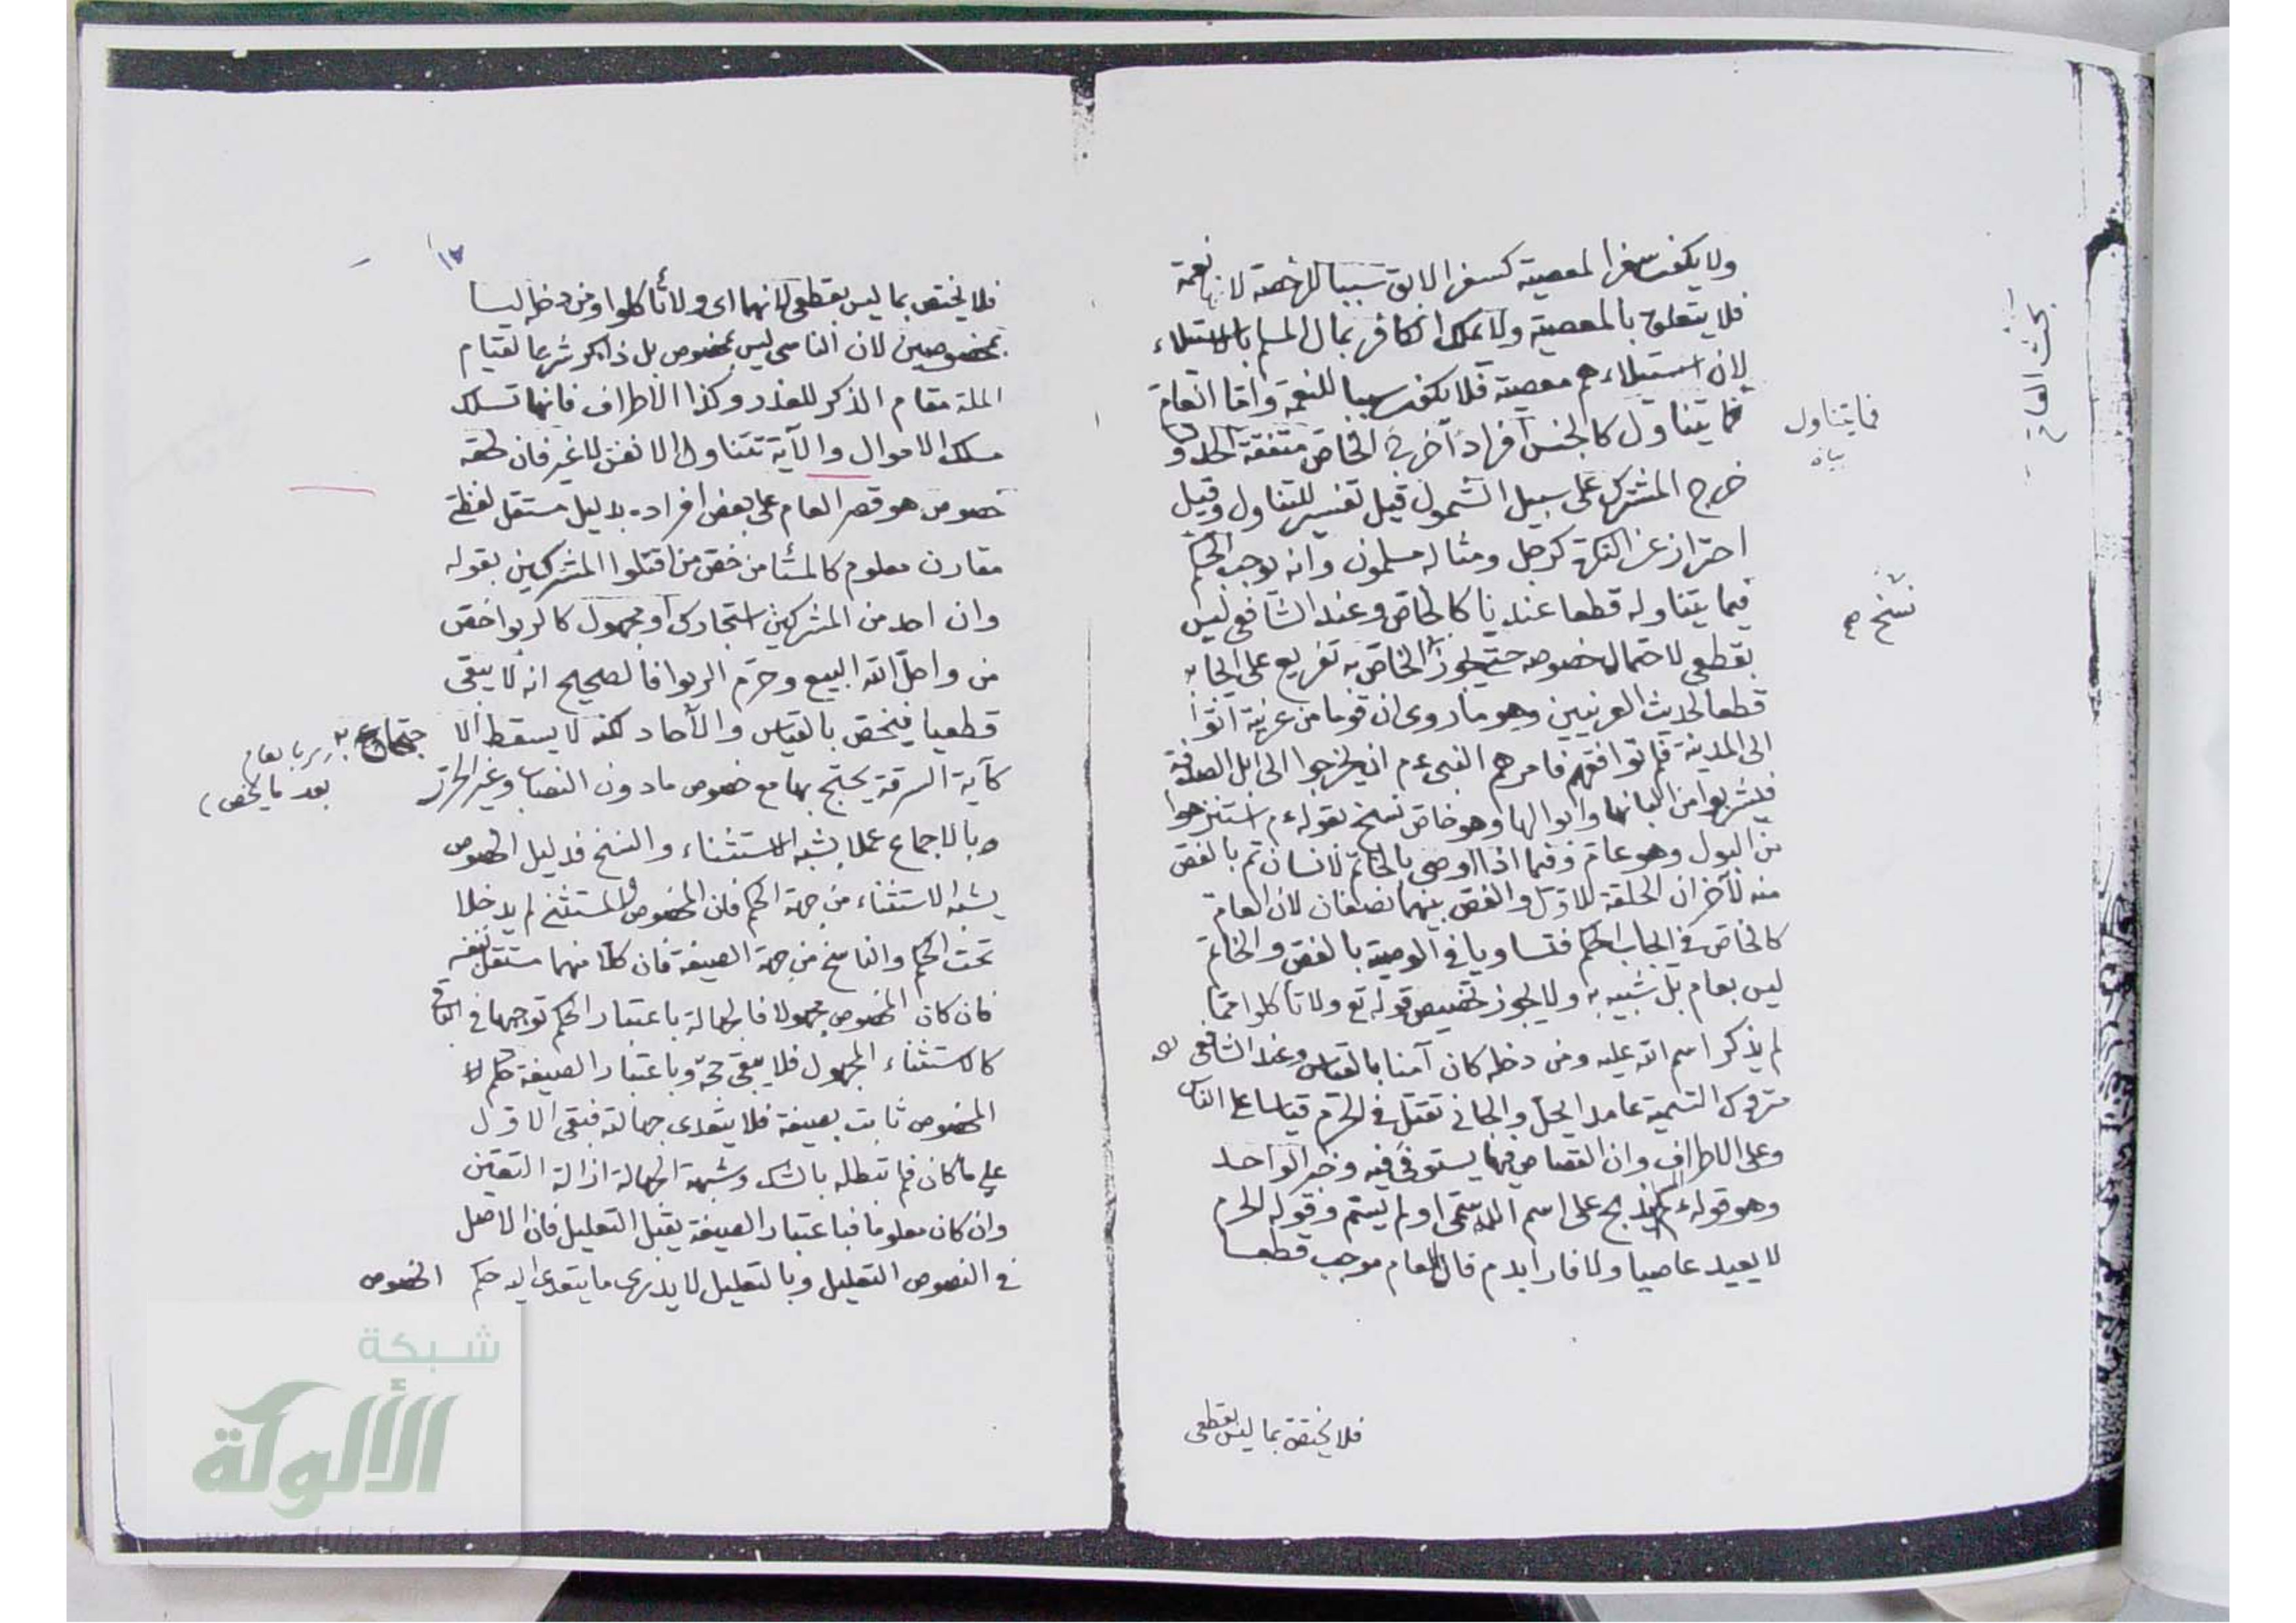 ولا يكون سفر المعصية كسفر الابق سببا للرخصة لانها نعمة
فلا يتعلق بالمعصية ولا يملك الكافر بمال المسلم بالاستيلاء
لان استيلاءهم معصية فلا يكون سببا للنعمة واما العام
فما يتناول كالجنس افرادا خرج الخاص متفقة الحدود
خرج المشترك على سبيل الشمول قيل تفسير للتناول وقيل
احتراز عن النكرة كرجل ومثاله مسلمون وانه يوجب الحكم
فيما يتناوله قطعا عندنا كالخاص وعند الشافعي ليس
بقطعي لاحتمال خصوصه حتى يجوز نسخ الخاص به تفريع على ايجابه
قطعا لحديث العرنيين وهو ما روى ان قوما من عرنية اتوا
الى المدينة فلم توافقهم فامرهم النبي ءم ان يخرجوا الى ابل الصدقة
فيشربوا من البانها وابوالها وهو خاص نسخ بقوله ءم استنزهوا
من البول وهو عام وفيما اذا اوصى بالخاتم لانسان ثم بالفص
منه لآخر ان الحلقة للاول والفص بينهما نصفان لان العام
كالخاص في ايجاب الحكم فتساويا في الوصية بالفص والخاتم
ليس بعام بل شبيه به ولا يجوز تخصيص قوله تع ولا تأكلوا مما
لم يذكر اسم الله عليه ومن دخله كان آمنا بالقياس وعند الشافعي
متروك التسمية عامدا يحل والجاني تقتل في الحرم قياسا على الناس
وعلى الاطراف وان القصاص فيها يستوفى فيه وخبر الواحد
وهو قوله ءم يذبح على اسم الله سمى او لم يسم وقوله الحرم
لا يعيد عاصيا ولا فارا بدم قال العام موجب قطعا
فلا يختص بما ليس بقطعي
بحث العام
فما يتناول
بيان
نسخ صح
١٢
فلا يختص بما ليس بقطعي لانهما اى ولا تأكلوا ومن دخله ليسا
بمخصوصين لان الناسي ليس بمخصوص بل ذاكر شرعا لقيام
الملة مقام الذكر للعذر وكذا الاطراف فانها تسلك
مسلك الاموال والآية تتناول الانفس لا غير فان لحقه
خصوص هو قصر العام على بعض افراده بدليل مستقل لفظي
مقارن معلوم كالمستأمن خص من اقتلوا المشركين بقوله
وان احد من المشركين استجارك او مجهول كالربوا خص
من واحل الله البيع وحرم الربوا فالصحيح انه لا يبقى
قطعيا فيخص بالقياس والآحاد لكنه لا يسقط الا
حتجاج به
كآية السرقة يحتج بها مع خصوص ما دون النصاب وغير الحرز
وبالاجماع عملا بشبه الاستثناء والنسخ فدليل الخصوص
يشبه الاستثناء من جهة الحكم فان المخصوص والمستثنى لم يدخلا
تحت الحكم والناسخ من جهة الصيغة فان كلا منهما مستقل بنفسه
فان كان المخصوص مجهولا فالجهالة باعتبار الحكم توجبها في الباقي
كالاستثناء المجهول فلا يبقى حجة وباعتبار الصيغة حكم
المخصوص ثابت بصيغة فلا يتعدى جهالته فبقي الاول
على ما كان فلم تبطله بالشك وشبهة الجهالة ازالة اليقين
وان كان معلوما فباعتبار الصيغة يقبل التعليل فان الاصل
في النصوص التعليل وبالتعليل لا يدرى ما يتعدى اليه حكم الخصوص
اي بالعام
بعد ما يخص
شبكة
الألوكة
www.alukah.net